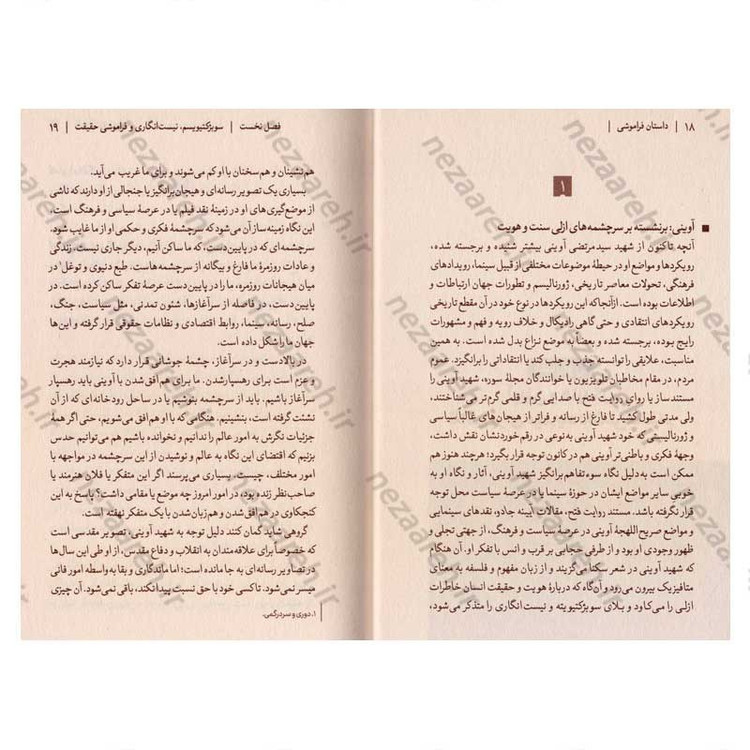 ۱۸ | داستان فراموشی |
۱
آوینی: برنشسته بر سرچشمه‌های ازلی سنت و هویت
آنچه تاکنون از شهید سیدمرتضی آوینی بیشتر شنیده و برجسته شده،
رویکردها و مواضع او در حیطهٔ موضوعات مختلفی از قبیل سینما، رویدادهای
فرهنگی، تحولات معاصر تاریخی، ژورنالیسم و تطورات جهان ارتباطات و
اطلاعات بوده است. ازآنجاکه این رویکردها در نوع خود در آن مقطع تاریخی
رویکردهای انتقادی و حتی گاهی رادیکال و خلاف رویه و فهم و مشهورات
رایج بوده، برجسته شده و بعضاً به موضع نزاع بدل شده است. به همین
مناسبت، علایقی را توانسته جذب و جلب کند یا انتقاداتی را برانگیزد. عموم
مردم، در مقام مخاطبان تلویزیون یا خوانندگان مجلهٔ سوره، شهید آوینی
مستندساز یا راوی روایت فتح با صدایی گرم و قلمی گرم‌تر می‌شناختند،
ولی مدتی طول کشید تا فارغ از رسانه و فراتر از هیجان‌های غالباً سیاسی
و ژورنالیستی که خود شهید آوینی به‌نوعی در رقم‌خوردنشان نقش داشت،
وجههٔ فکری و باطنی‌تر آوینی هم در کانون توجه قرار بگیرد؛ هرچند هنوز هم
ممکن است به دلیل نگاه سوءتفاهم‌برانگیز شهید آوینی، آثار و نگاه او به
خوبی سایر مواضع ایشان در حوزهٔ سینما یا در عرصهٔ سیاست محل توجه
قرار نگرفته باشد. مستند روایت فتح، مقالات آیینه جادو، نقدهای سینمایی
و مواضع صریح‌اللهجهٔ آوینی در عرصهٔ سیاست و فرهنگ، از جهتی تجلی و
ظهور وجودی او بود و از طرفی حجابی بر قرب و انس با تفکر او. آن هنگام
که شهید آوینی در شعر سکنا می‌گزیند و از زبان مفهوم و فلسفه به معنای
متافیزیک بیرون می‌رود و آن‌گاه که دربارهٔ هویت و حقیقت انسان خاطرات
ازلی را می‌کاود و بلای سوبژکتیویته و نیست‌انگاری را متذکر می‌شود،
فصل نخست | سوبژکتیویسم، نیست‌انگاری و فراموشی حقیقت | ۱۹
هم‌نشینان و هم‌سخنان با او کم می‌شوند و برای ما غریب می‌آید.
بسیاری یک تصویر رسانه‌ای و هیجان‌برانگیز یا جنجالی از او دارند که ناشی
از موضع‌گیری‌های او در زمینهٔ نقد فیلم یا در عرصهٔ سیاسی و فرهنگ است.
این نگاه زمینه‌ساز آن می‌شود که سرچشمهٔ فکری و حکمی او از ما غایب شود.
سرچشمه‌ای که در پایین‌دست، که ما ساکن آنیم، دیگر جاری نیست. زندگی
و عادات روزمرهٔ ما فارغ و بیگانه از سرچشمه‌هاست. طبع دنیوی و توغل۱ در
میان هیجانات روزمره، ما را در پایین‌دست عرصهٔ تفکر ساکن کرده است. در
پایین‌دست، در فاصله از سرآغازها، شئون تمدنی، مثل سیاست، جنگ،
صلح، رسانه، سینما، روابط اقتصادی و نظامات حقوقی قرار گرفته و این‌ها
جهان ما را شکل داده است.
در بالادست و در سرآغاز، چشمهٔ جوشانی قرار دارد که نیازمند هجرت
و عزم است برای رهسپارشدن. ما برای هم‌افق‌شدن با آوینی باید رهسپار
سرآغاز باشیم. باید از سرچشمه بنوشیم یا در ساحل رودخانه‌ای که از آن
نشئت گرفته است، بنشینیم. هنگامی که با او هم‌افق می‌شویم، حتی اگر همهٔ
جزئیات نگرش به امور عالم را ندانیم و نخوانده باشیم هم می‌توانیم حدس
بزنیم که اقتضای این نگاه به عالم و نوشیدن از این سرچشمه در مواجهه با
امور مختلف، چیست. بسیاری می‌پرسند اگر این متفکر یا فلان هنرمند یا
صاحب‌نظر زنده بود، در امور امروز چه موضع یا مقامی داشت؟ پاسخ به این
کنجکاوی در هم‌افق‌شدن و هم‌زبان‌شدن با یک متفکر نهفته است.
گروهی شاید گمان کنند دلیل توجه به شهید آوینی، تصویر مقدسی است
که خصوصاً برای علاقه‌مندان به انقلاب و دفاع مقدس، از او طی این سال‌ها
در تصاویر رسانه‌ای به جا مانده است؛ اما ماندگاری و بقا به‌واسطه امور فانی
میسر نمی‌شود. تا کسی خود با حق نسبت پیدا نکند، باقی نمی‌شود. آن چیزی
۱. دوری و سردرگمی.
nezaareh.ir